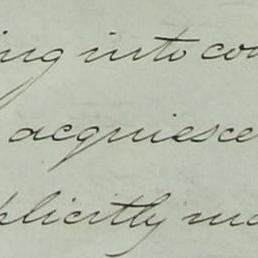 ing into con
acquiesce
plicitly ma